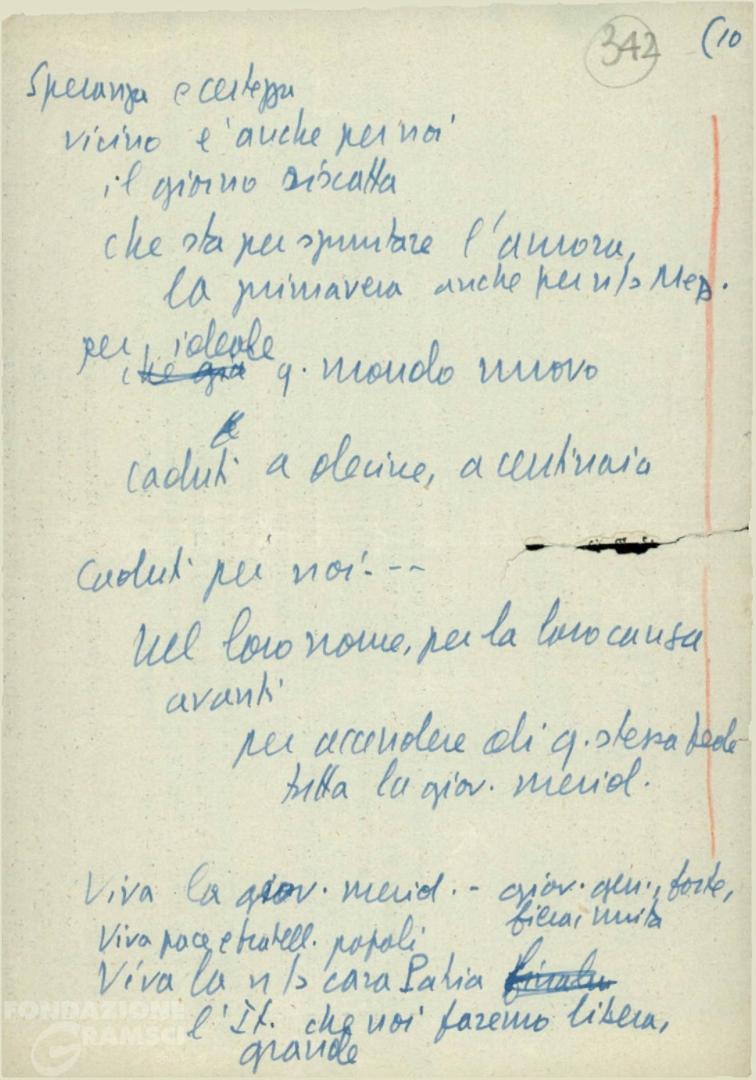 342 (10
Speranza e certezza
vicino e' anche per noi
il giorno riscatta
che sta per spuntare l'aurora,
la primavera anche per n/s Mer.
per ideale
che già q. mondo nuovo
caduti a decine, a centinaia
Caduti per noi. --
Nel loro nome, per la loro causa
avanti
per accendere di q. stessa fede
tutta la giov. merid.
Viva la giov. merid. - giov. gen., forte,
fiera, unita
Viva pace e fratell. popoli
Viva la n/s cara Patria
l'It. che noi faremo libera,
grande
FONDAZIONE
GRAMSCI